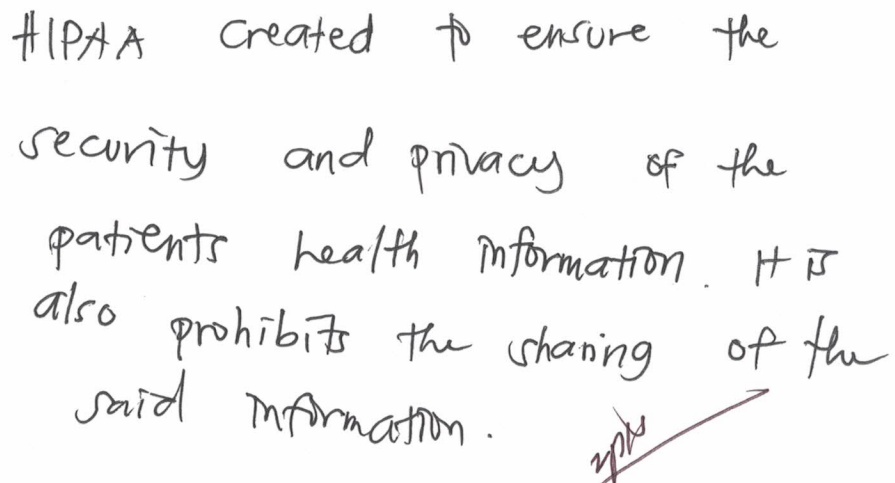 HIPAA created to ensure the
security and privacy of the
patients health information. It is
also prohibits the sharing of the
said information.
2pts